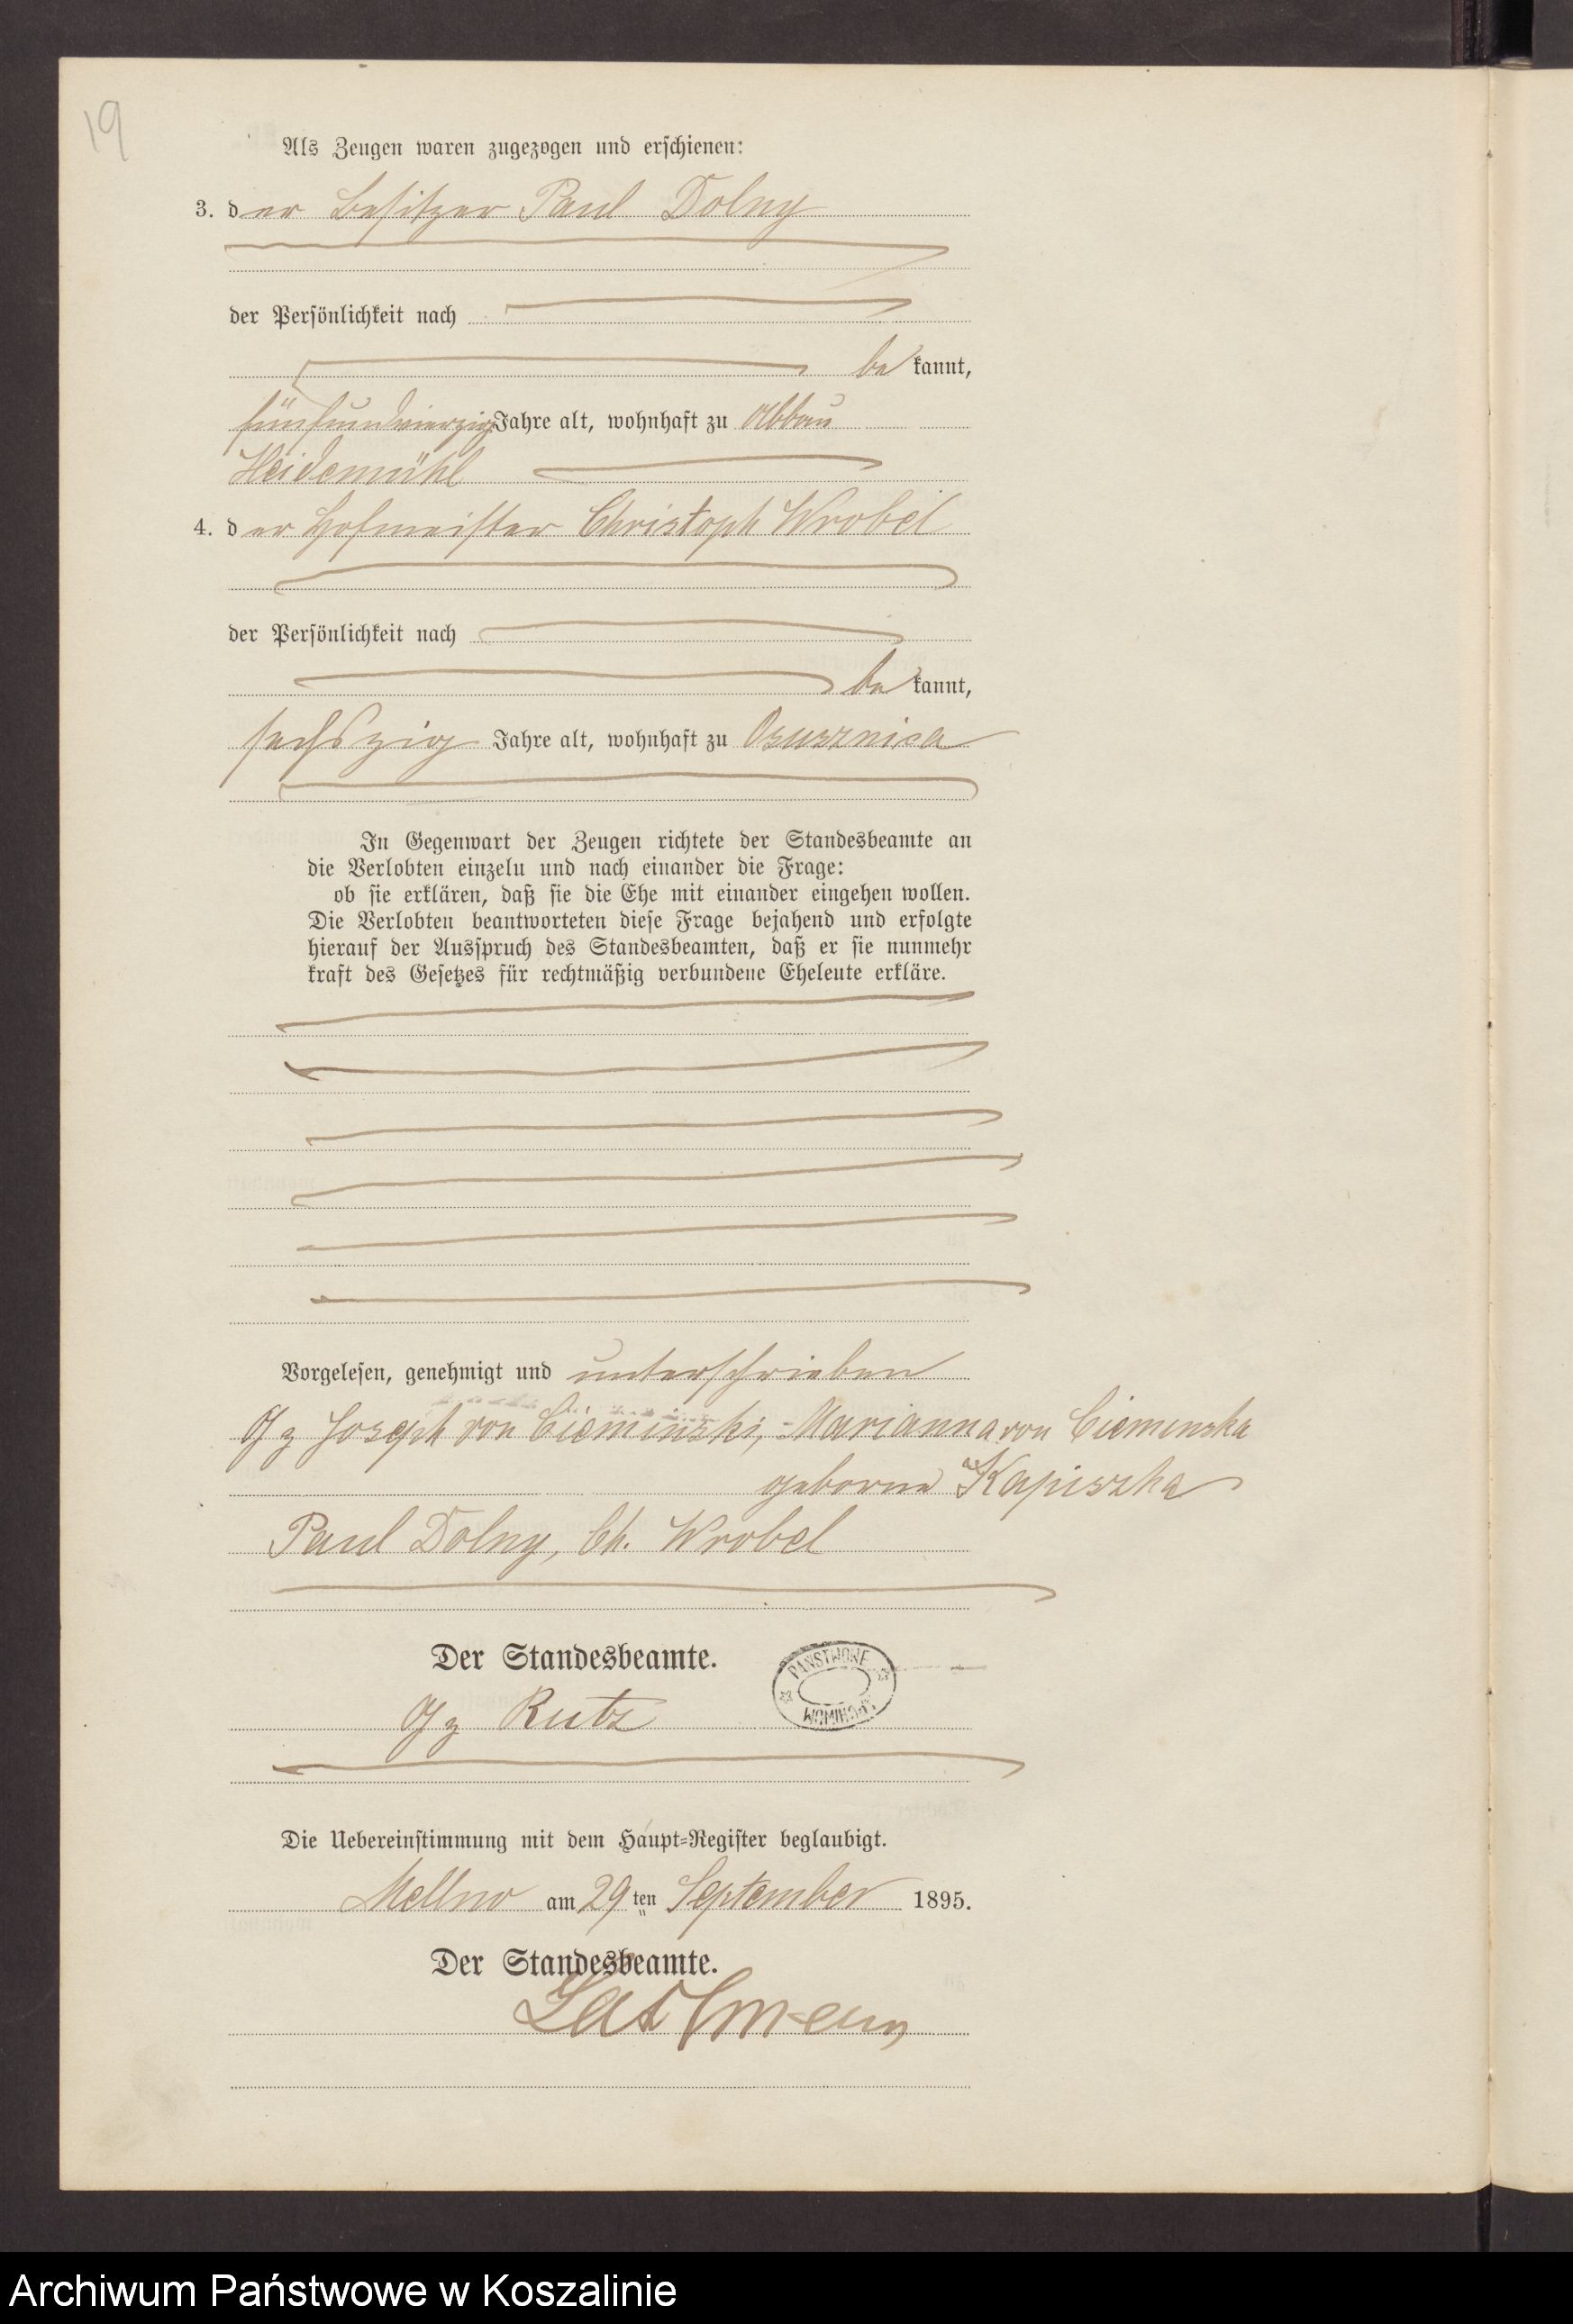 19
Als Zeugen waren zugezogen und erschienen:
3. der Besitzer Paul Dolny
der Persönlichkeit nach
be kannt,
fünfundvierzig Jahre alt, wohnhaft zu Abbau
Heidemühl
4. der Hofmeister Christoph Wrobel
der Persönlichkeit nach
be kannt,
sechszig Jahre alt, wohnhaft zu Osusznica
In Gegenwart der Zeugen richtete der Standesbeamte an
die Verlobten einzeln und nach einander die Frage:
ob sie erklären, daß sie die Ehe mit einander eingehen wollen.
Die Verlobten beantworteten diese Frage bejahend und erfolgte
hierauf der Ausspruch des Standesbeamten, daß er sie nunmehr
kraft des Gesetzes für rechtmäßig verbundene Eheleute erkläre.
Vorgelesen, genehmigt und unterschrieben
Gz Joseph von Cieminski, Marianna von Cieminska
geborne Kapiszka
Paul Dolny, Ch. Wrobel
Der Standesbeamte.
Gz Rutz
PAŃSTWOWE
Die Uebereinstimmung mit dem Haupt-Register beglaubigt.
Mellno am 29ten September 1895.
Der Standesbeamte.
Archiwum Państwowe w Koszalinie